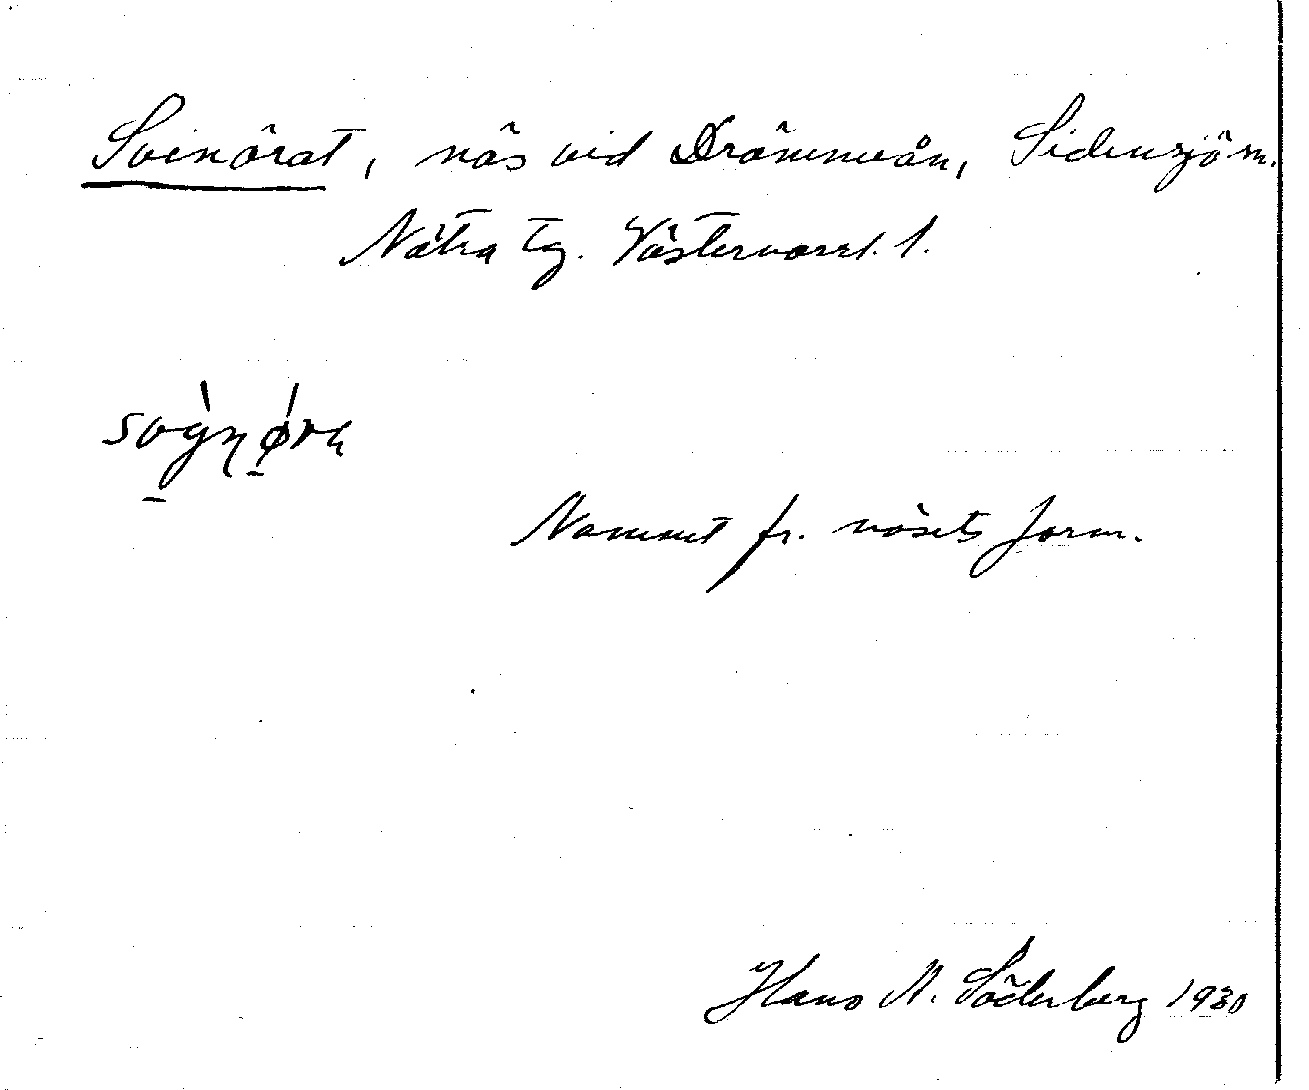 Svinörat, näs vid Drömmeån, Sidensjö sn.
Nätra tg. Västernorrl. l.
Namnet fr. näsets form.
Hans N. Söderberg 1930